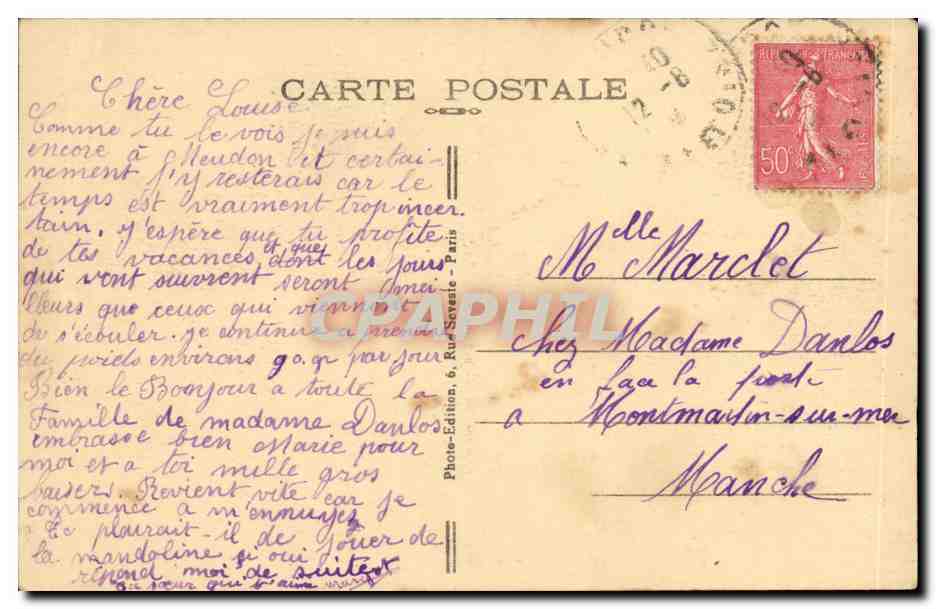 CARTE POSTALE
Chère Louise
Comme tu le vois je suis
encore à Meudon et certai-
nement j'y resterais car le
temps est vraiment trop incer.
tain. J'espère que tu profite
de tes vacances et que
dont les jours
qui vont suivrent seront mei-
lleurs que ceux qui viennent
de s'écouler. je continue a prendre
du poids environs 90.gr par jour
Bien le Bonjour a toute la
Famille de madame Danlos
embrasse bien Marie pour
moi et a toi mille gros
baisers. Revient vite car je
commence a m'ennuyez
Te plairait-il de jouer de
la mandoline si oui
répond moi de suite
ta sœur qui t'aime
Photo-Edition, 6, Rue Seveste - Paris
REPUBLIQUE FRANÇAISE
50c
POSTES
12 -8
Melle Marclet
chez Madame Danlos
en face la poste
a Montmartin-sur-mer
Manche
CPAPHIL